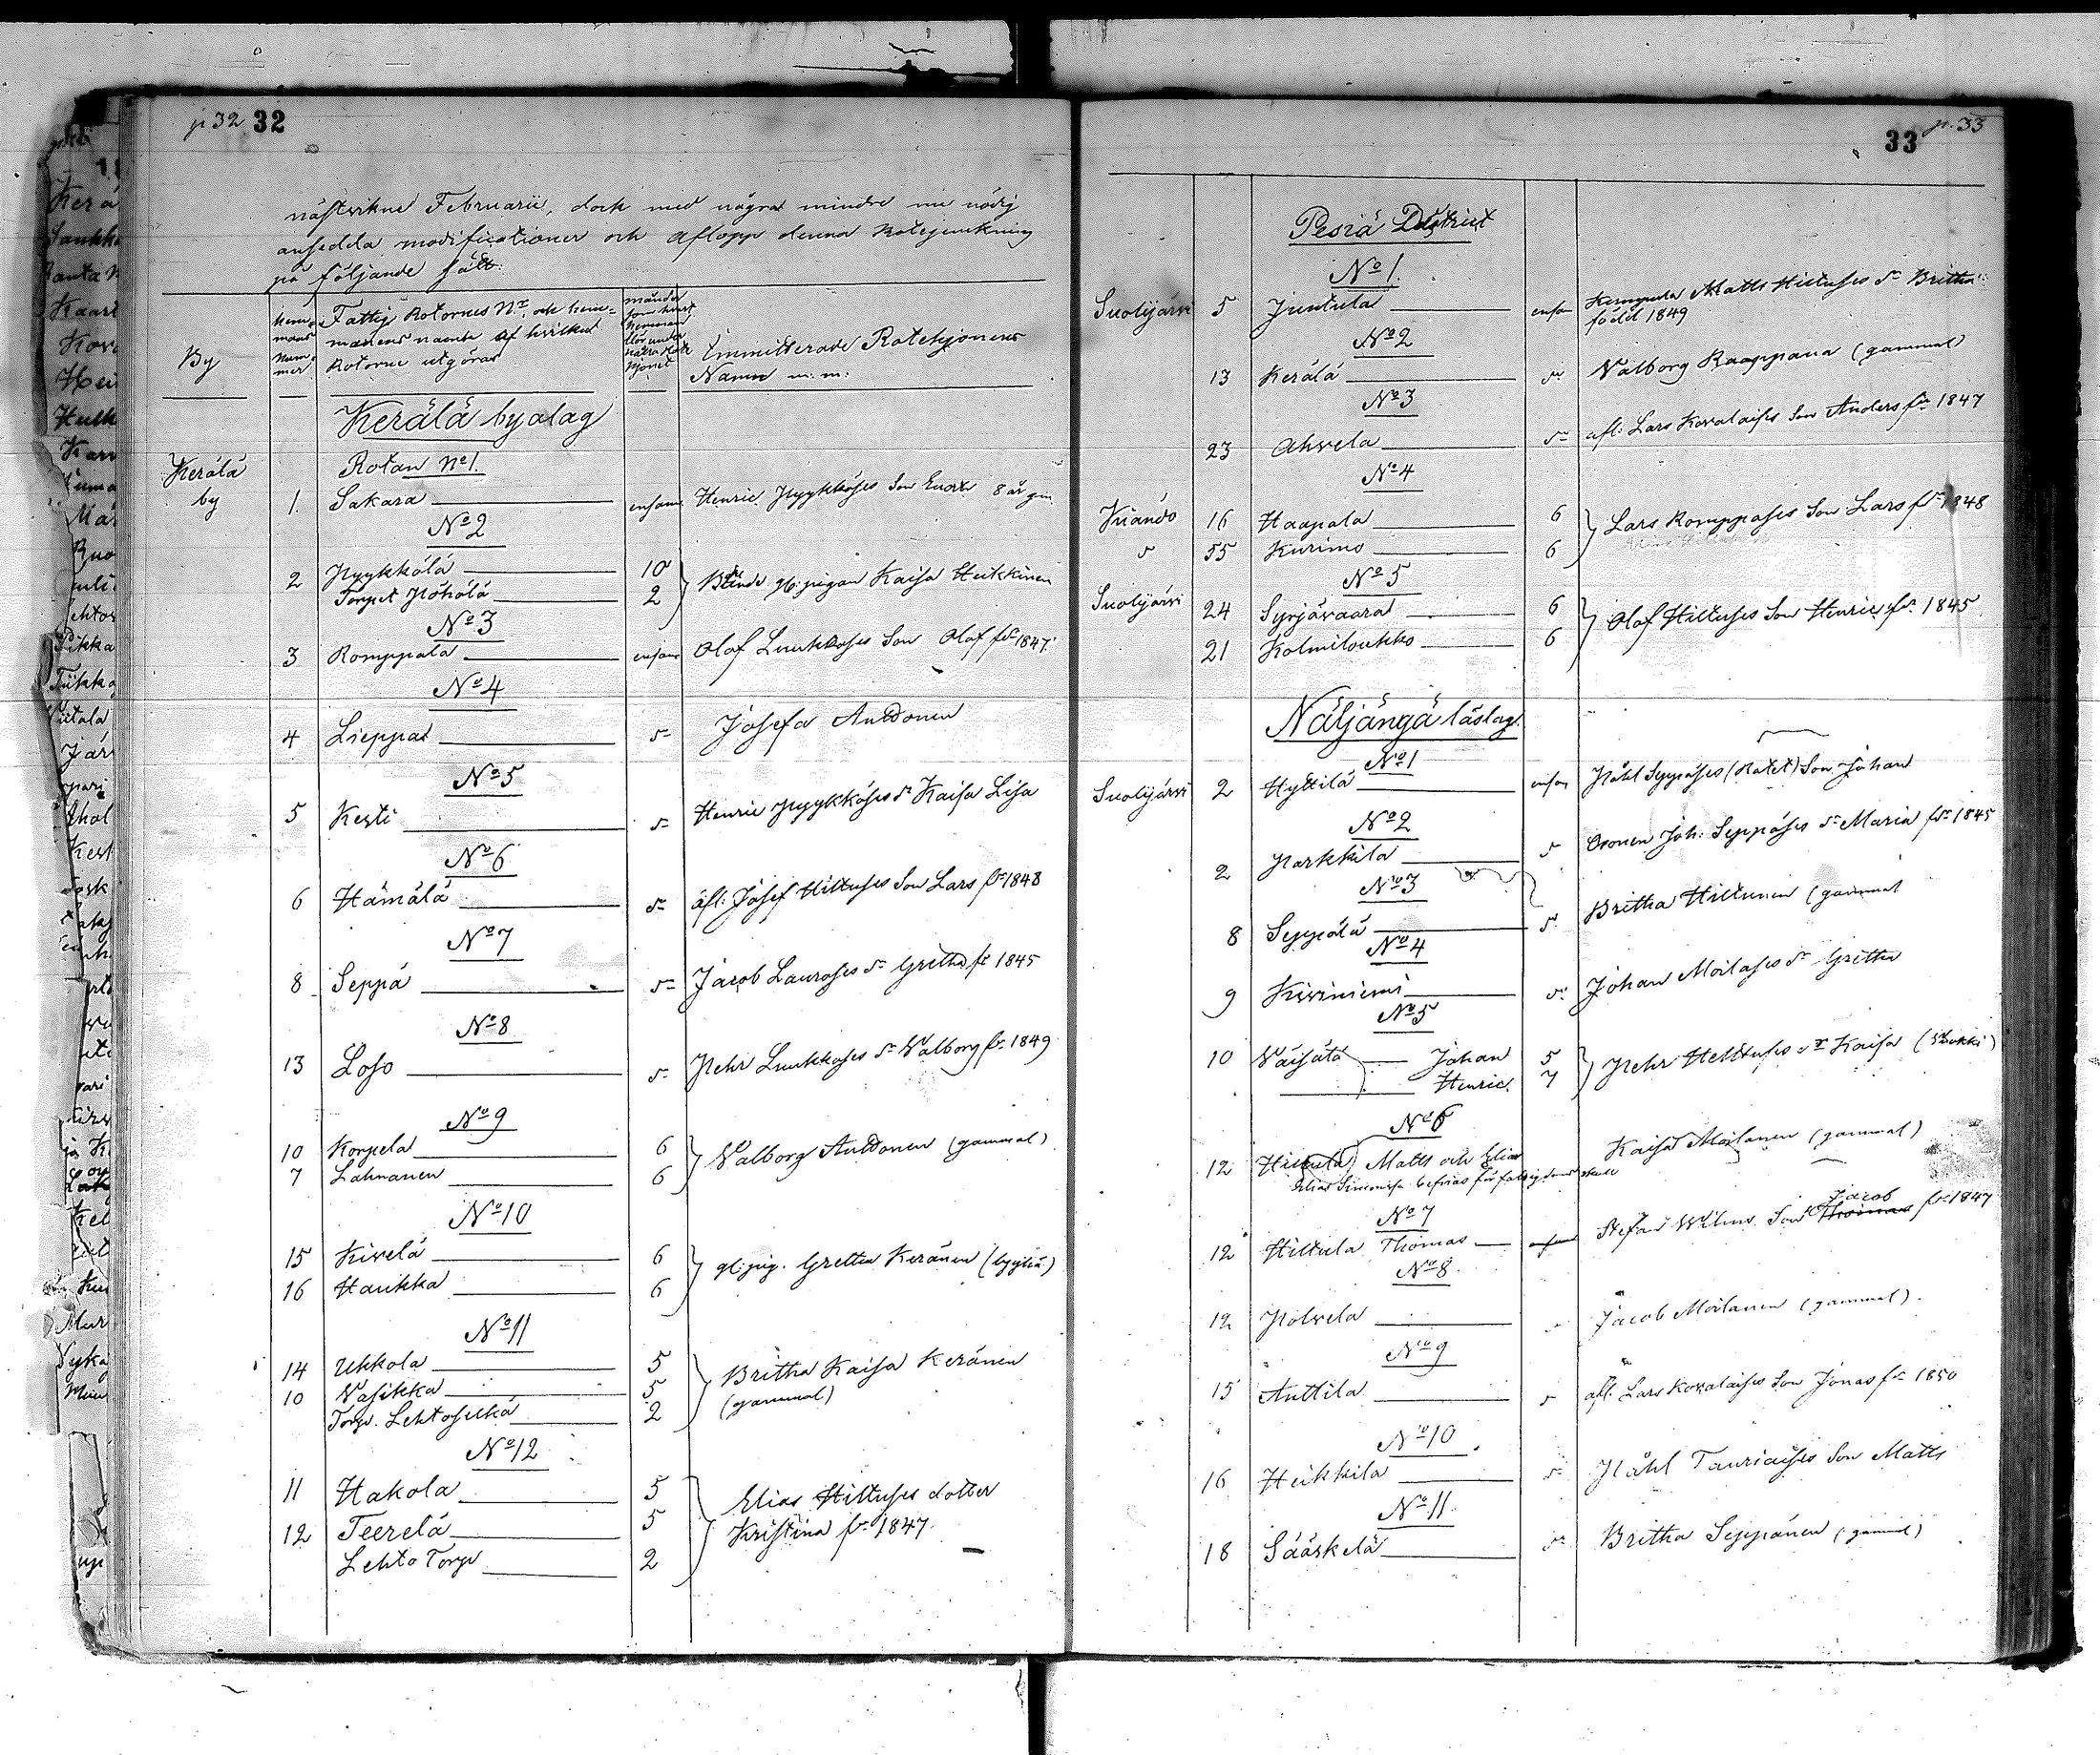 p 32 32
nästvikne Februarii, dock med några mindre nu nödig
ansedda modificationer och aflopp denna Rotejemkning
på följande sätt:
By
Hemmans Nummer
Fattig Rotornes Nr. och hemmanens namn af hvilket Rotorne utgöras
Immitterade Rotehjonens
Namn m: m:
Kerälä byalag
Kerälä
by
Rotan No 1.
1. Sakara ensam Henric Pyykköses Son Enort 8 år gm.
No 2
2 Pyykkölä 10 Blinde gl: pigan Kaisa Heikkinen
Torpet Pöhölä 2
No 3
3 Romppala ensam Olof Luukkoses Son Olof fdr 1847.
No 4
4 Lieppa dr Josefa Anttonen
No 5
5 Kesti dr Henric Pyykköses dr Kaisa Lisa
No 6
6 Hämälä dr afl: Josef Hiltuses Son Lars fdr 1848
No 7
8 Seppä dr Jacob Lauroses dr Gretha fdr 1845
No 8
13 Loso dr Pehr Luukkoses dr Walborg fdr 1849
No 9
10 Korpela 6 Walborg Anttonen (gammal)
7 Lahnanen 6
No 10
15 Kivelä 6 gl: pig. Gretha Keränen (
16 Haukka 6
No 11
14 Ukkola 5 Britha Kaisa Keränen
10 Vasikka 5 (gammal)
Torp. Lehtoselkä 2
No 12
11 Hakola 5 Elias Hiltuses dotter
12 Teerelä 5 Kristina fdr 1847.
Lehto Torp 2
33 p. 33
Pesiä District
No 1.
Suolijärvi 5 Juntula ensam Matts Hiltuses dr Britha
född 1849
No 2
13 Kerälä dr Walborg Raappana (gammal)
No 3
23 Ahvela dr afl: Lars Kovalaises Son Anders fdr 1847
No 4
Vuändö 16 Haapala 6 Lars Romppases Son Lars fdr 1848
55 Kurimo 6
No 5
Suolijärvi 24 Syrjävaara 6 Olof Hiltuses Son Henric fdr 1845
21 Kolmiloukko 6
Näljängä läslag.
No 1
Suolijärvi 2 Hyttilä ensam Påhl Seppäses (Ratet) Son Johan
No 2
2 Parkkila dr Joh: Seppäses dr Maria fdr 1845
No 3
8 Seppälä dr Britha Hiltunen (gammal
No 4
9 Kiviniemi dr Johan Moilases dr Gretha
No 5
10 Väisälä Johan 5 Pehr Heltuses dr Kaisa
Henric. 7
No 6
12 Hiltula Matts och Elias Kaisa Moilanen (gammal)
Elias befrias för fattigdoms skull
No 7
Jacob
12 Hiltula Thomas ensam Stefan Wilms Son Thomas fdr 1847
No 8
12 Polvela Jacob Moilanen (gammal).
No 9
15 Anttila dr afl. Lars Kovalaises Son Jonas fdr 1850
No 10
16 Heikkilä dr Påhl Tauriaises Son Matts
No 11
18 Sääskelä dr Britha Seppänen (gammal)